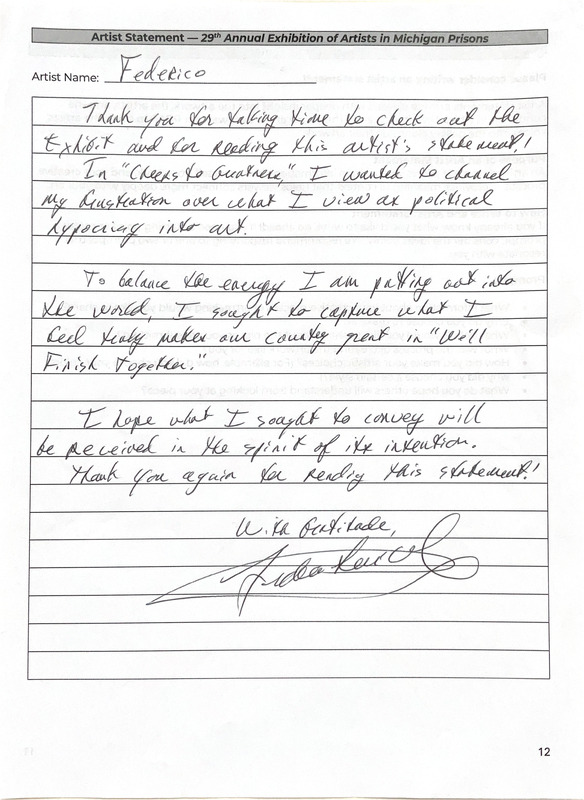 Artist Statement — 29th Annual Exhibition of Artists in Michigan Prisons
Artist Name: Federico
Thank you for taking time to check out the
Exhibit and for reading this artist's statement!
In "Cheers to Greatness," I wanted to channel
my frustration over what I view as political
hypocrisy into art.
To balance the energy I am putting out into
the world, I sought to capture what I
feel truly makes our country great in "We'll
Finish Together."
I hope what I sought to convey will
be received in the spirit of its intention.
Thank you again for reading this statement!
With Gratitude,
12